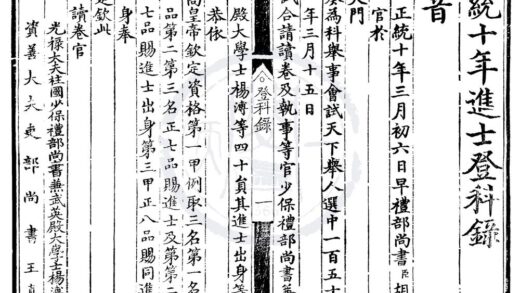 統十年進士登科錄
音
正統十年三月初六日早禮部尚書臣胡
官於
門
奏爲科舉事會試天下舉人選中一百五十
試合請讀卷及執事等官少保禮部尚書兼
年三月十五日
登科錄 一
殿大學士楊溥等四十員其進士出身等
恭依
皇帝欽定資格第一甲例取三名第一名
品第二第三名正七品賜進士及第第二
七品賜進士出身第三甲正八品賜同進
身奉
是欽此
讀卷官
光祿大夫柱國少保禮部尚書兼武英殿大學士楊溥
資善大夫吏部尚書王